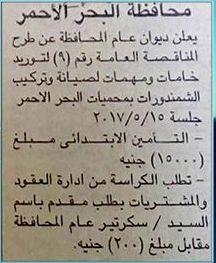 محافظة البحر الأحمر
يعلن ديوان عام المحافظة عن طرح
المناقصة العامة رقم (٩) لتوريد
خامات ومهمات لصيانة وتركيب
الشمندورات بمحميات البحر الاحمر
جلسة ٢٠١٧/٥/١٥
- التأمين الابتدائى مبلغ
(١٥٠٠٠) جنيه
- تطلب الكراسة من ادارة العقود
والمشتريات بطلب مقدم باسم
السيد / سكرتير عام المحافظة
مقابل مبلغ (٢٠٠) جنيه.